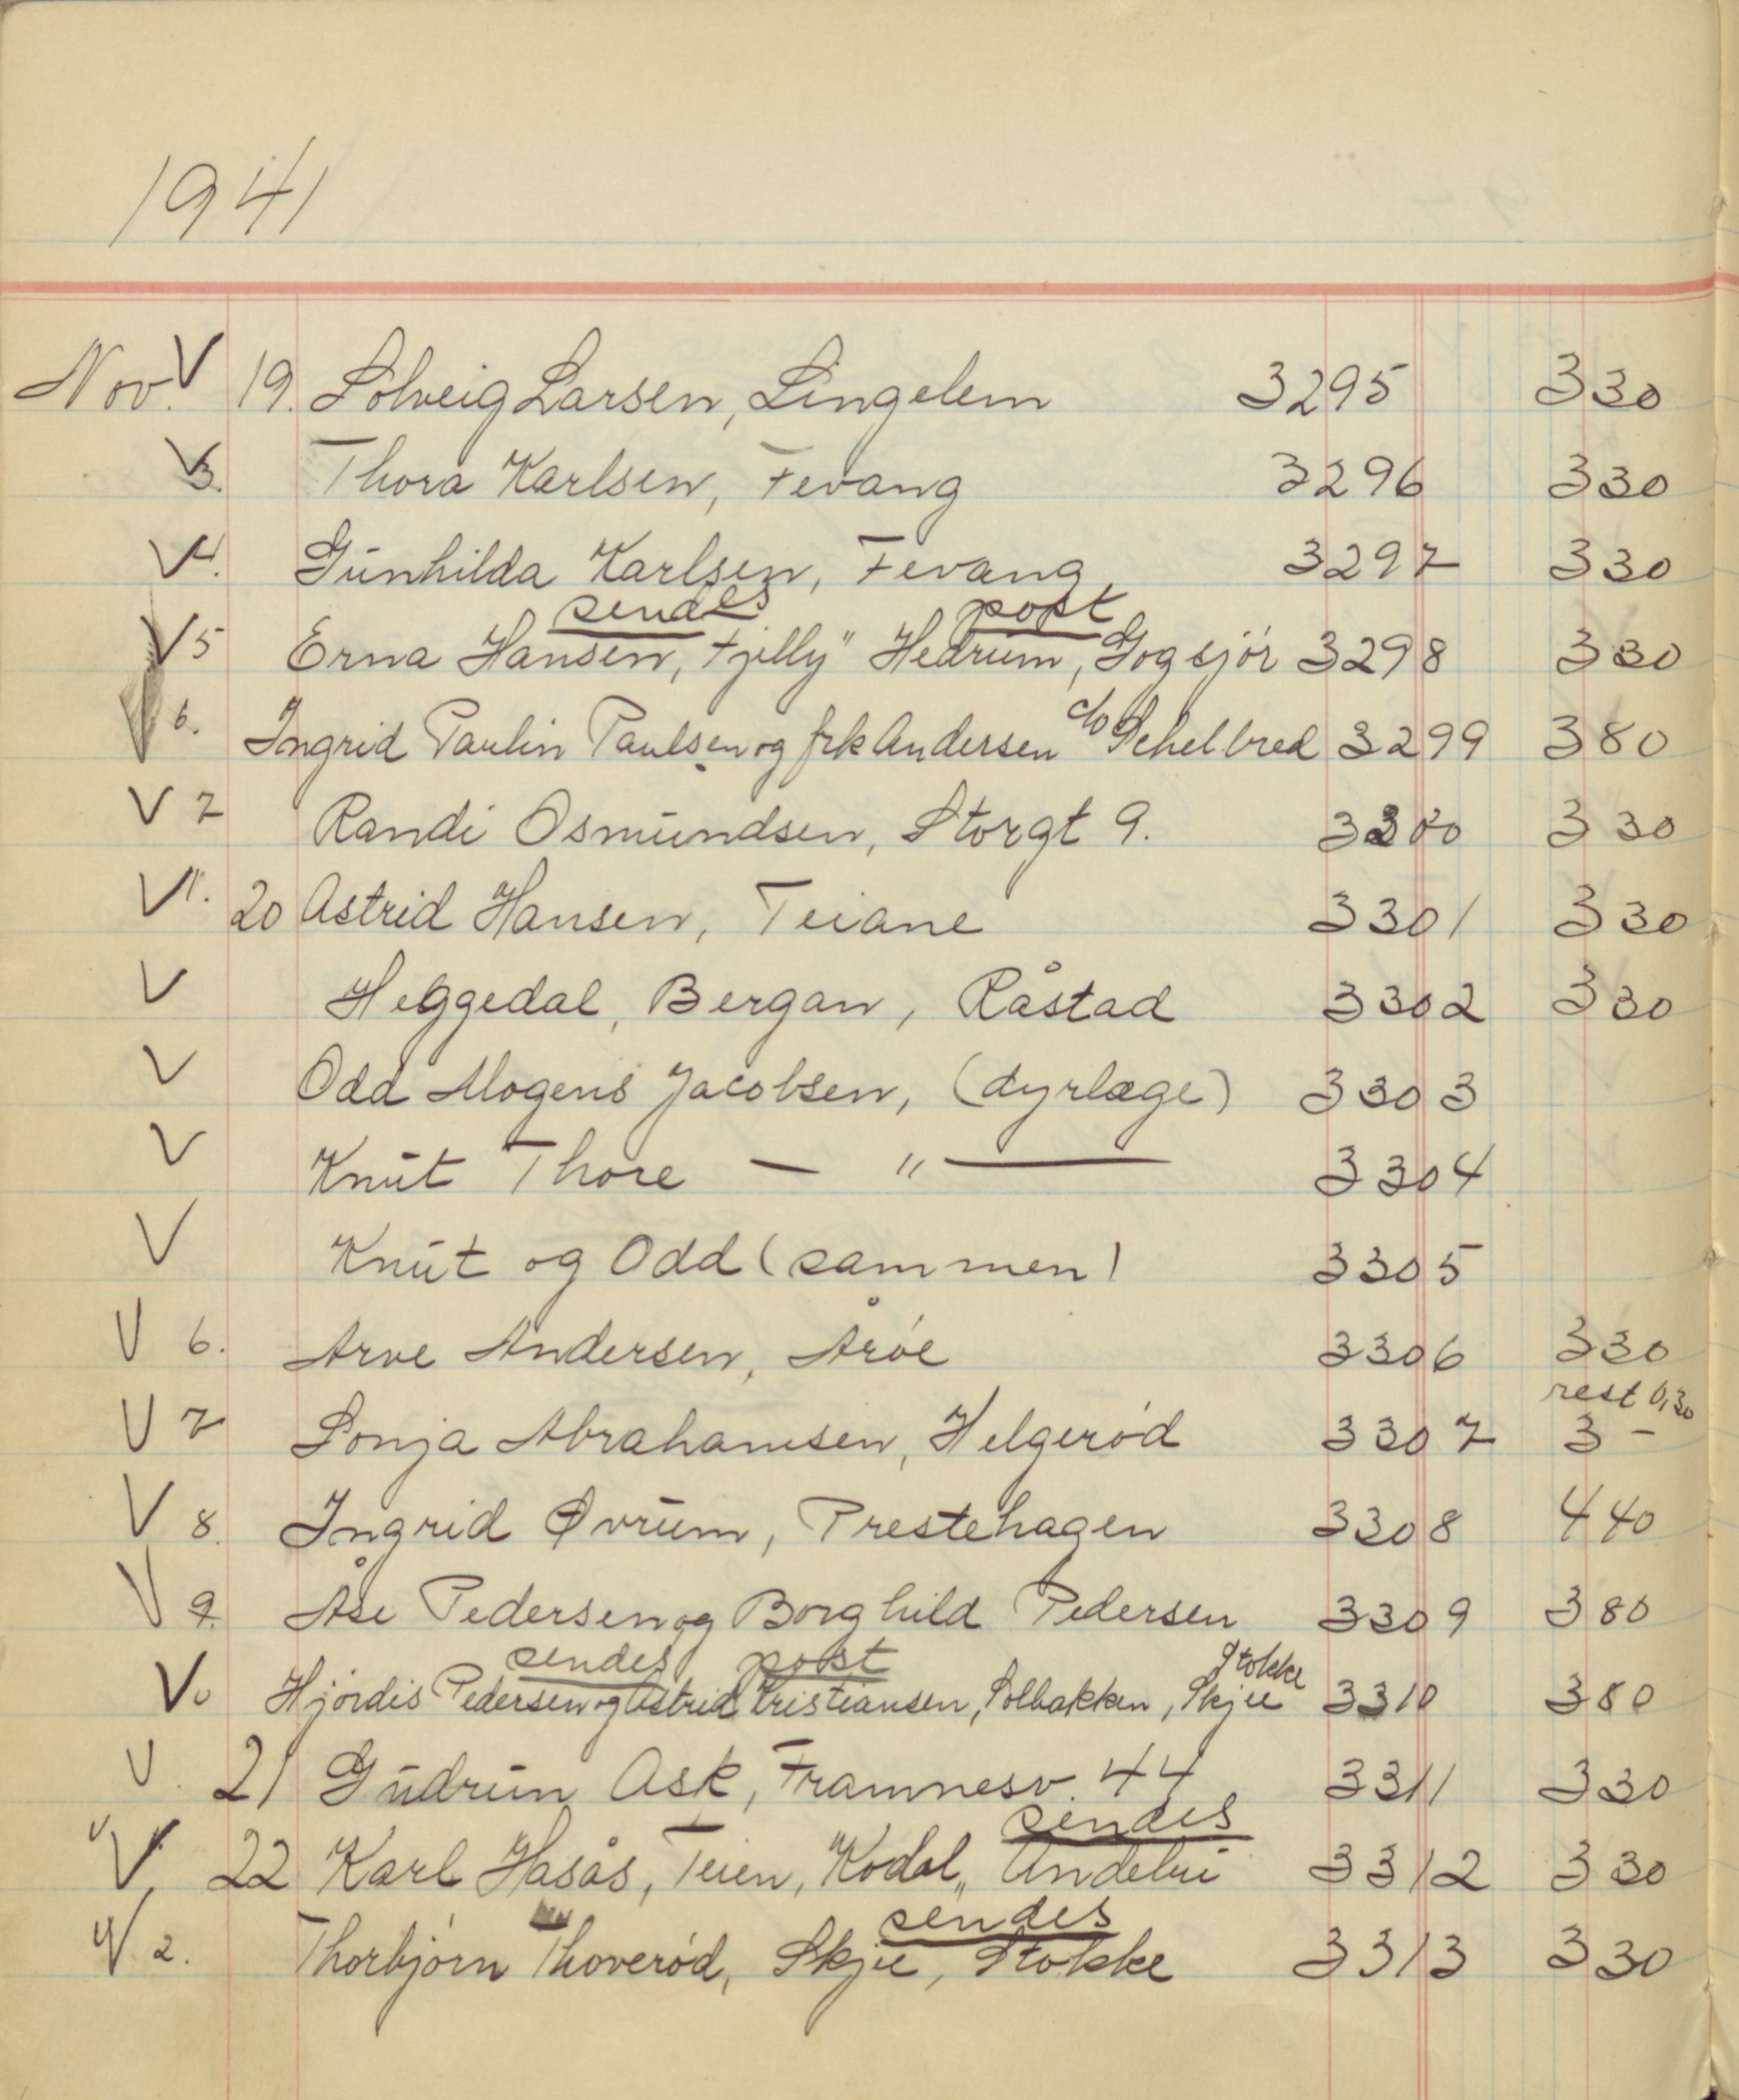 1941
Nov. V 19. Solveig Larsen, Lingelem 3295 330
V 3. Thora Karlsen, Fevang 3296 330
V 4. Gunhilda Karlsen, Fevang, 3297 330
sendes post
V 5 Erna Hansen, Fjelly" Hedrum, Gogsjør 3298 330
V 6. Ingrid Paulin Paulsen og frk Andersen c/o Sehelbred 3299 380
V 7 Randi Osmundsen, Storgt 9. 3300 330
V 1. 20 Astrid Hansen, Teiane 3301 330
V Heggedal, Bergan, Råstad 3302 330
V Odd Mogens Jacobsen, (dyrlæge) 3303
V Knut Thore — " — 3304
V Knut og Odd (sammen) 3305
V 6. Arve Andersen, Årøe 3306 330
rest 0,30
V 7 Sonja Abrahamsen, Helgerød 3307 3 -
V 8. Ingrid Øvrum, Prestehagen 3308 440
V 9. Åse Pedersen og Borghild Pedersen 3309 380
sendes post Stokke
V 0 Hjørdis Pedersen og Astrid Kristiansen, Solbakken, Skjee 3310 380
V . 21 Gudrun Ask, Framnesv. 44 3311 330
sendes
V V. 22 Karl Hasås, Teien, Kodal,, Andebu 3312 330
sendes
V 2. Thorbjørn Thoverød, Skjee, Stokke 3313 330